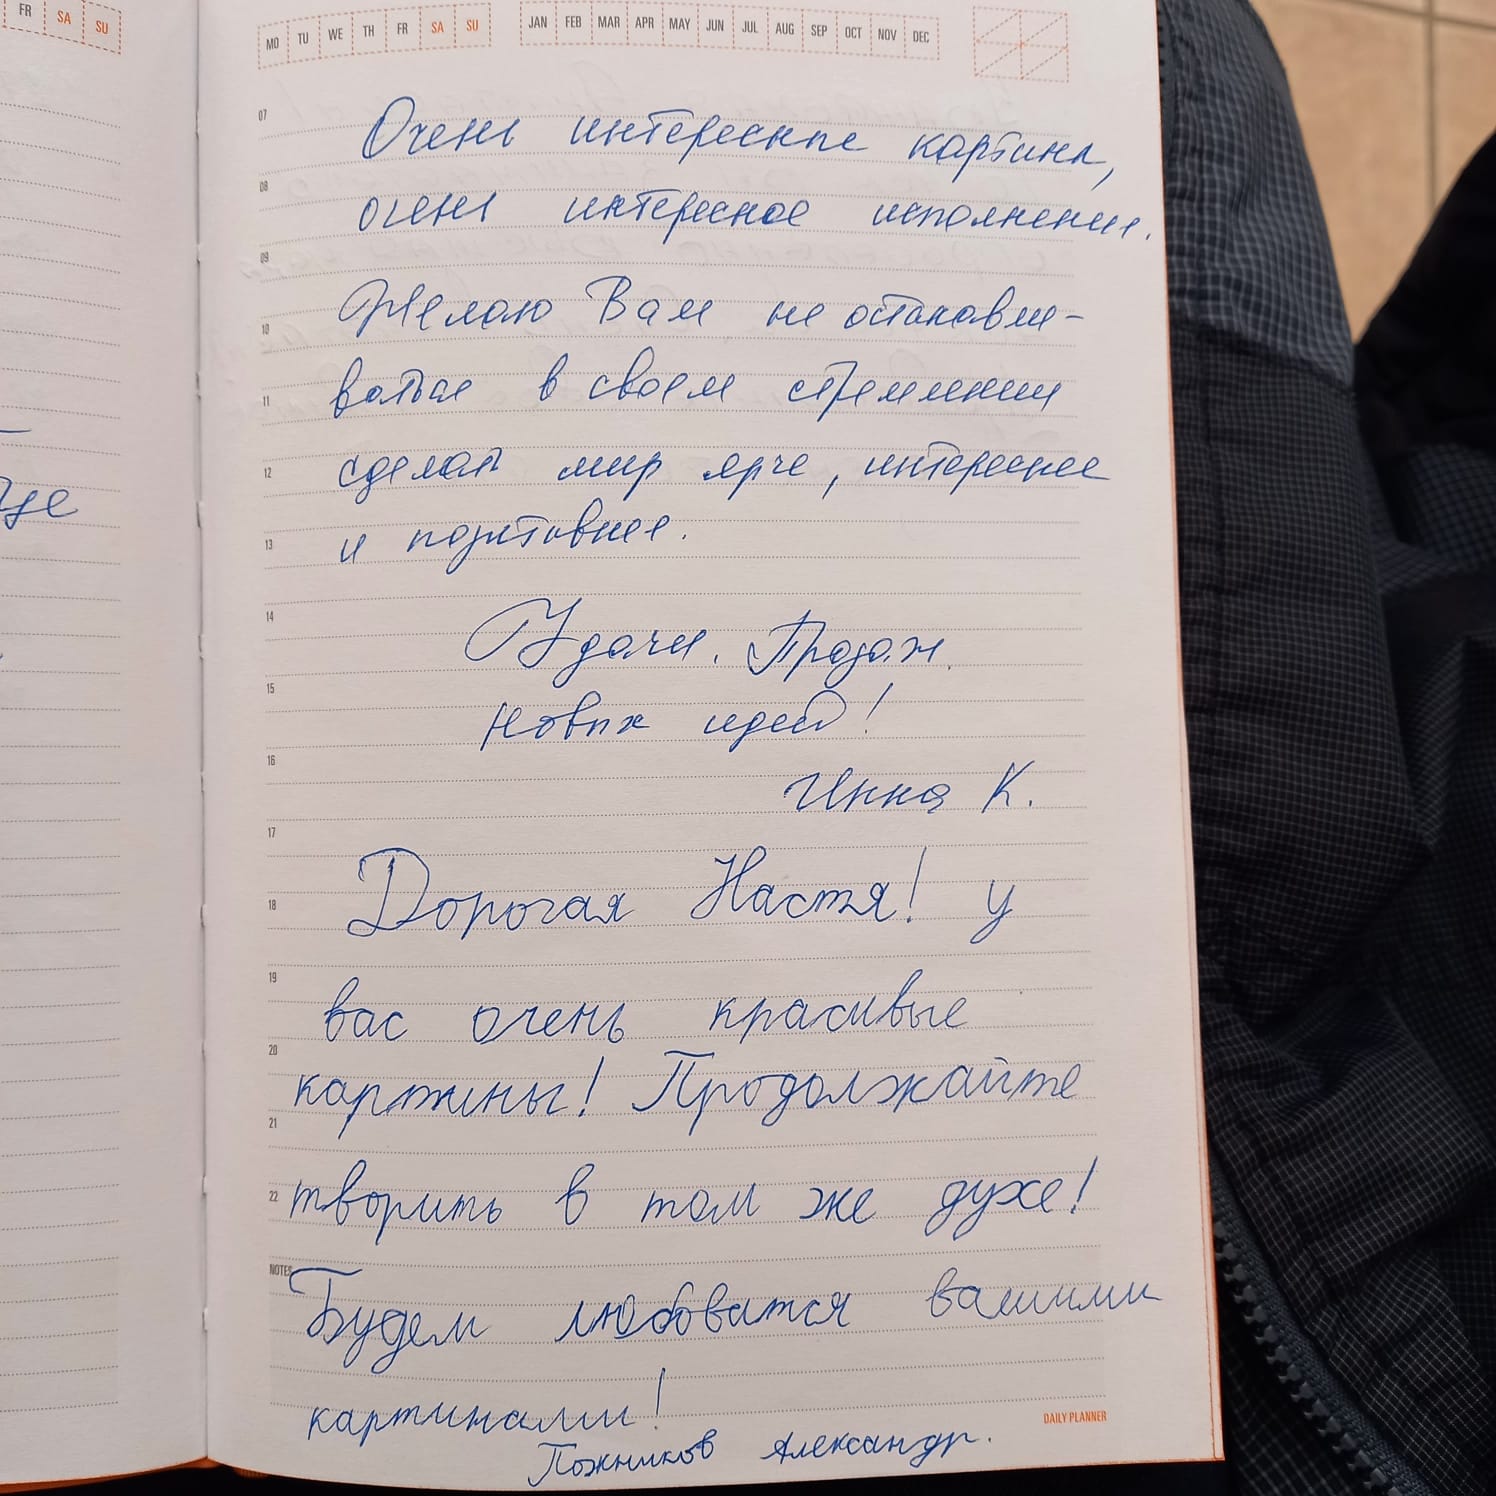 FR SA SU
MO TU WE TH FR SA SU JAN FEB MAR APR MAY JUN JUL AUG SEP OCT NOV DEC
07
Очень интересные картины,
08
очень интересное исполнение.
09
Желаю Вам не останавли-
10
ваться в своем стремлении
11
сделать мир ярче, интереснее
12
и позитивнее.
13
14
Удачи. Продаж.
15
Новых идей!
16
Инна К.
17
Дорогая Настя! у
18
19
вас очень красивые
20
картины! Продолжайте
21
творить в том же духе!
22
NOTES
Будем любоватся вашими
картинами!
DAILY PLANNER
Пожников Александр.